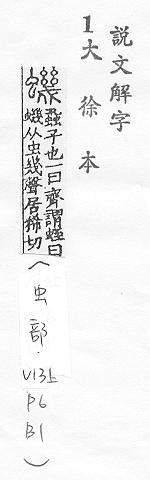 說文解字
1大徐本
蟣
蝨子也一曰齊謂蛭曰
蟣从虫幾聲居狶切
(虫部.
V13上
P6
B1)